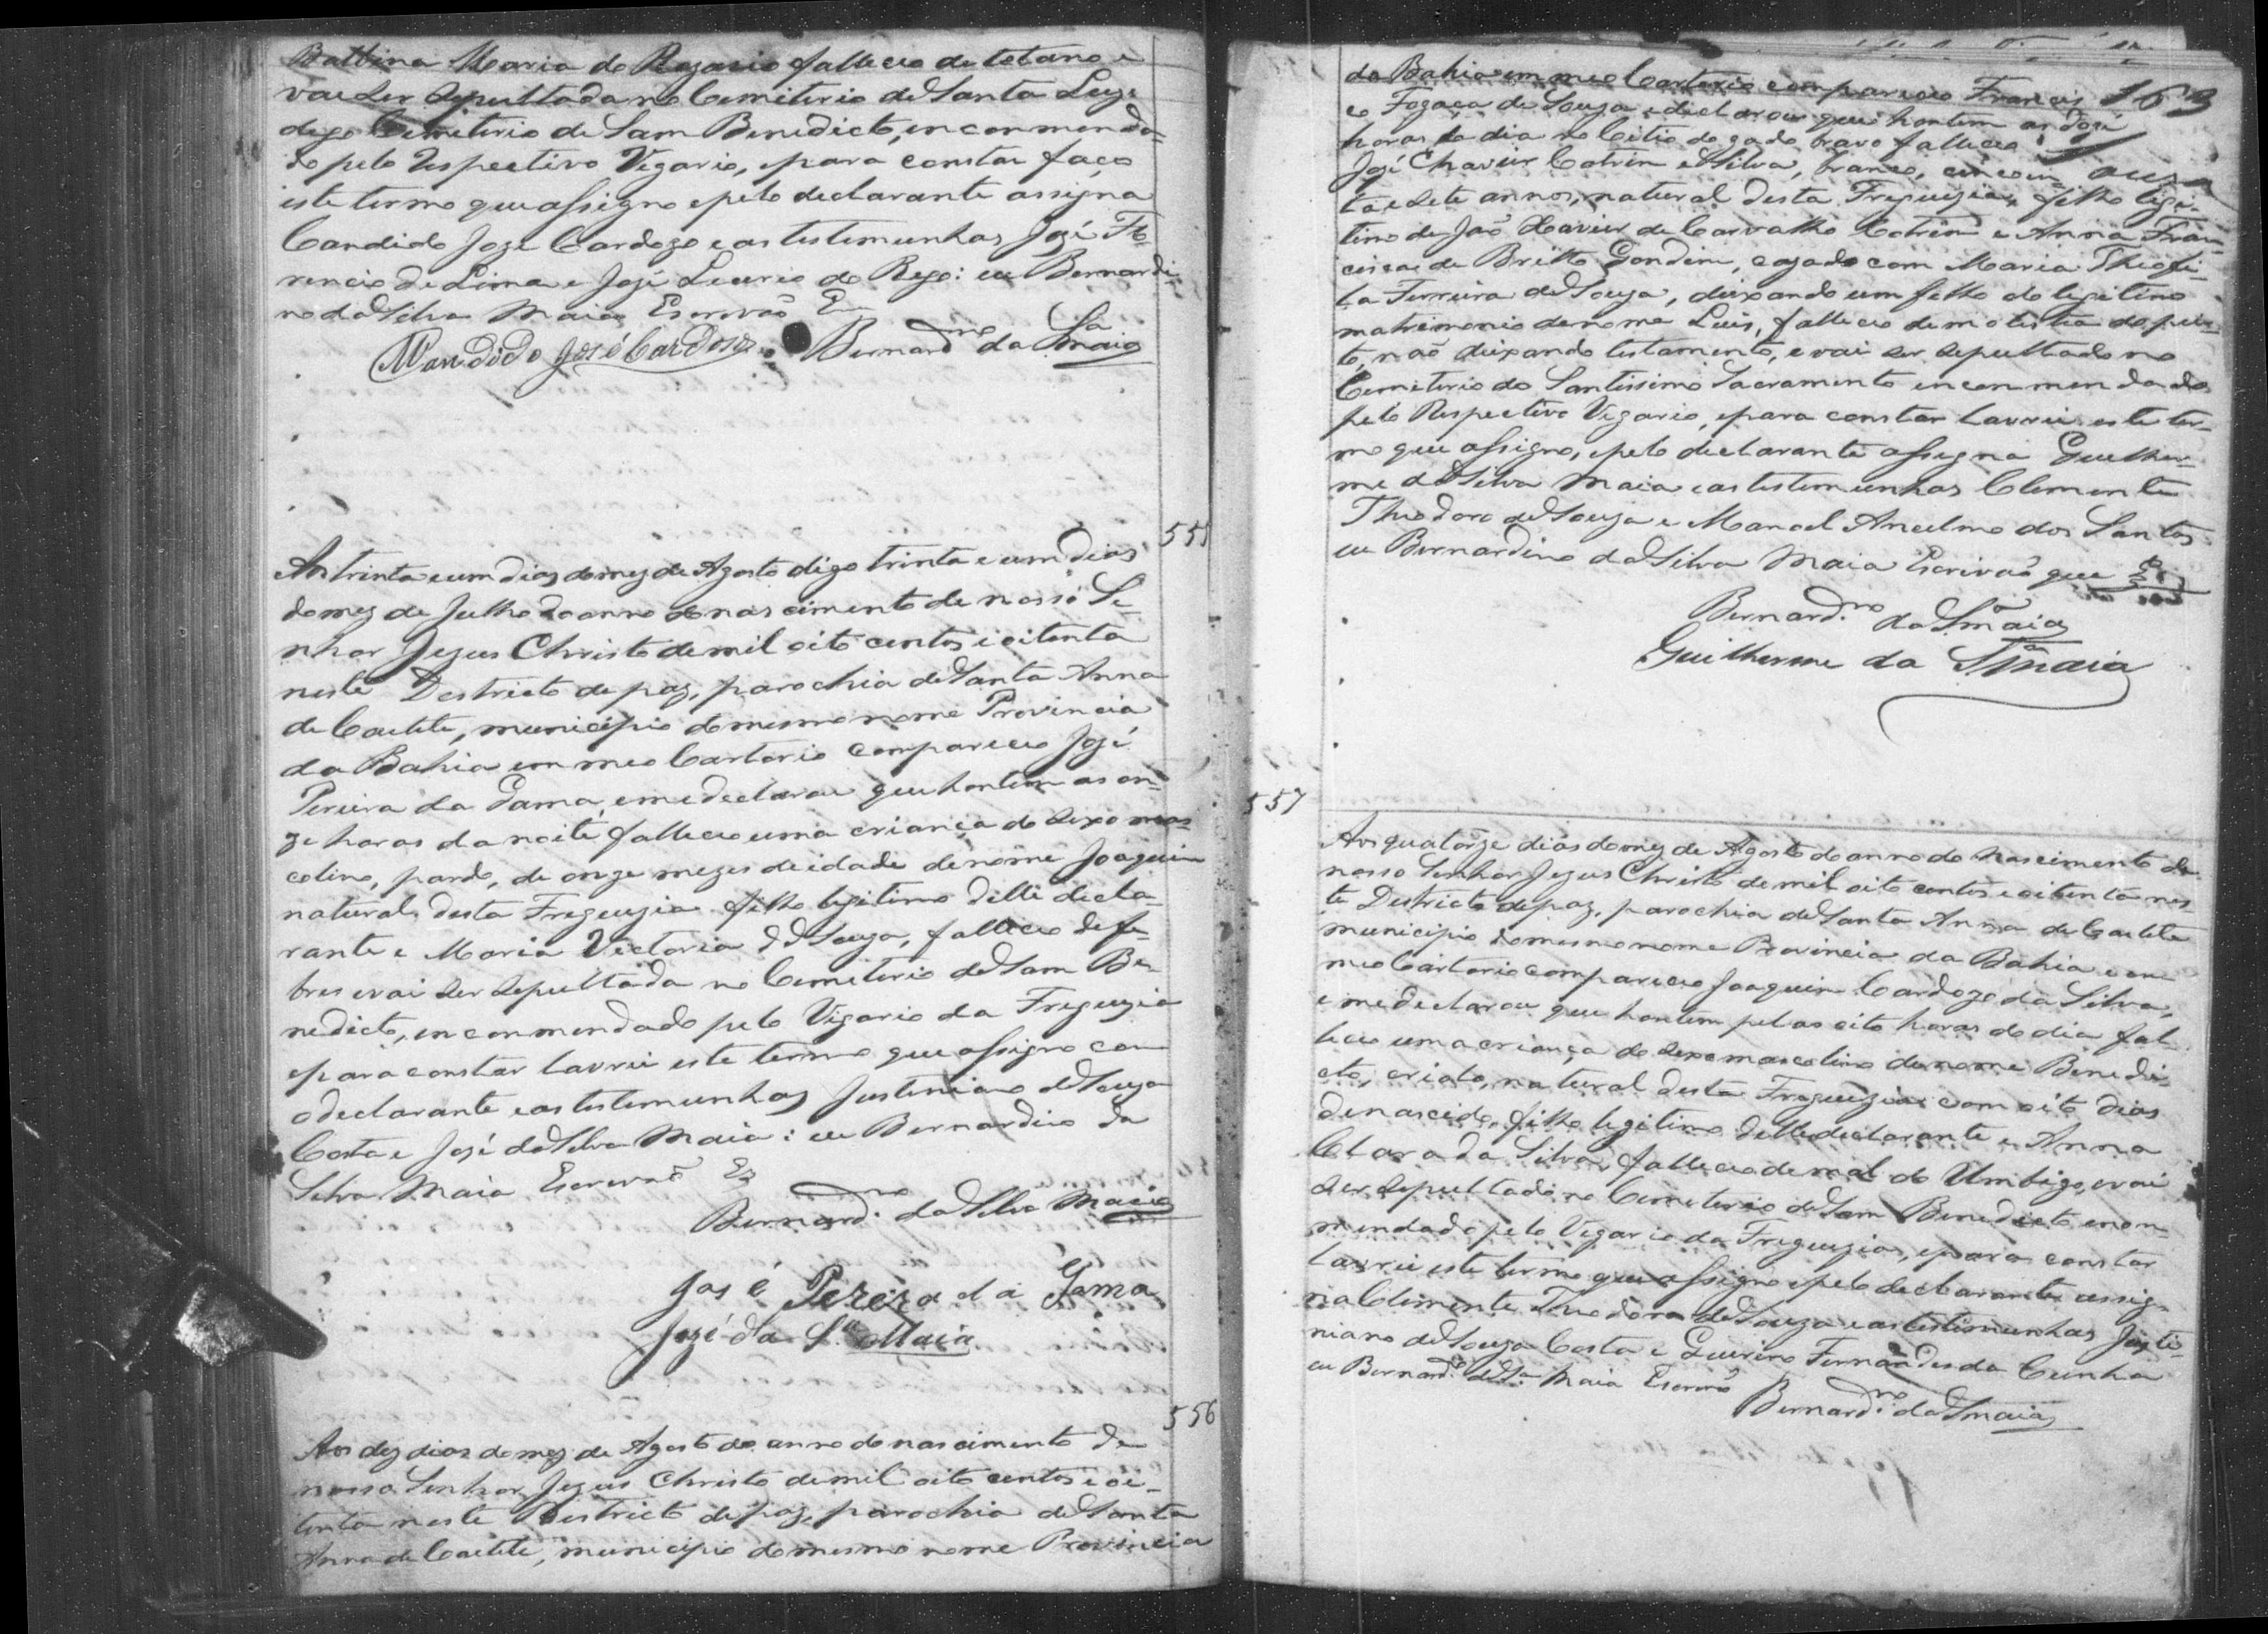 Balbina Maria do Rozario falleceo de tetano e
vae ser sepultada no Cemiterio de Santa Luz
digo Cemiterio de Sam Benedicto, enconmenda-
do pelo respectivo Vigario, e para constar faço
este termo que assigno e pelo declarante assigna
Candido Joze Cardozo e as testemunhas José Flo-
rencio de Lima e José do Rego: eu Bernardi-
no da Silva Maia Escrivão
Candido José Cardoso. Bernardno da Sa Maia
555
Aos trinta e um dias do mez de Agosto digo trinta e um dias
do mez de Julho do anno do nascimento de nosso Se-
nhor Jezus Christo de mil oito centos e oitenta
neste Destricto de paz, parochia de Santa Anna
de Caetite, municipio do mesmo nome Provincia
da Bahia em meo Cartorio compareceo José
Pereira da Gama, e me declarou que hontem as on-
ze horas da noite falleceo uma criança do sexo mas-
colino, pardo, de onze mezes de idade de nome Joaquim
natural desta Freguezia filho legitimo delle decla-
rante e Maria Victoria de Souza, falleceo de fe-
bres e vai ser sepultada no Cemiterio de Sam Be-
nedicto, enconmendado pelo Vigario da Freguezia
e para constar lavrei este termo que assigno com
o declarante e as testemunhas Justiniano de Souza
Costa e José da Silva Maia: eu Bernardino da
Silva Maia Escrivão
Bernardno da Silva Maia
José Pereira da Gama
Jozé da Sa Maia
556
Aos dez dias do mez de Agosto do anno do nascimento de
nosso Senhor Jezus Christo de mil oito centos e oi-
tenta neste Destricto de paz, parochia de Santa
Anna de Caetite, municipio do mesmo nome Provincia
163
da Bahia em meo Cartorio compareceo Francis-
co Fogaça de Souza e declarou que hontem as doze
horas do dia no Citio do gado bravo falleceo
José Chavier Cotrim e Silva, branco, cincoen-
ta e sete annos, natural desta Freguezia, filho legi-
timo de João Xavier de Carvalho Cotrim e Anna Fran-
cisca de Britto Gondim, cazado com Maria Theofi-
la Ferreira de Souza, deixando um filho do legitimo
matrimonio de nome Luis, falleceo de molestia do pei-
to, não deixando testamento, e vai ser sepultado no
Cemiterio do Santissimo Sacramento enconmendado
pelo Respectivo Vigario, e para constar lavrei este ter-
mo que assigno, e pelo declarante assigna Guilher-
me da Silva Maia e as testemunhas Clemente
Theodoro de Souza e Manoel Ancelmo dos Santos
eu Bernardino da Silva Maia Escrivão que
Bernardno da Sa Maia
Guilherme da Sa Maia
557
Aos quatorze dias do mez de Agosto do anno do Nascimento de
nosso Senhor Jezus Christo de mil oito centos e oitenta nes-
te Destricto de paz, parochia de Santa Anna de Caetite
municipio do mesmo nome Provincia da Bahia e em
meo Cartorio compareceo Joaquim Cardozo da Silva,
e me declarou que hontem pelas oito horas do dia fal-
leceo uma criança do sexo mascolino de nome Benedi-
cto, criolo, natural desta Freguezia com oito dias
de nascido, filho legitimo delle declarante e Anna
Clara da Silva, falleceo de mal do Umbigo, e vai
ser sepultado no Cemiterio de Sam Benedicto encon-
mendado pelo Vigario da Freguezia, e para constar
lavrei este termo que assigno e pelo declarante assig-
na Clemente Theodoro de Souza e as testemunhas Justi-
niano de Souza Costa e Quirino Fernandes da Cunha
eu Bernardno da Sa Maia Escrivão
Bernardno da Sa Maia